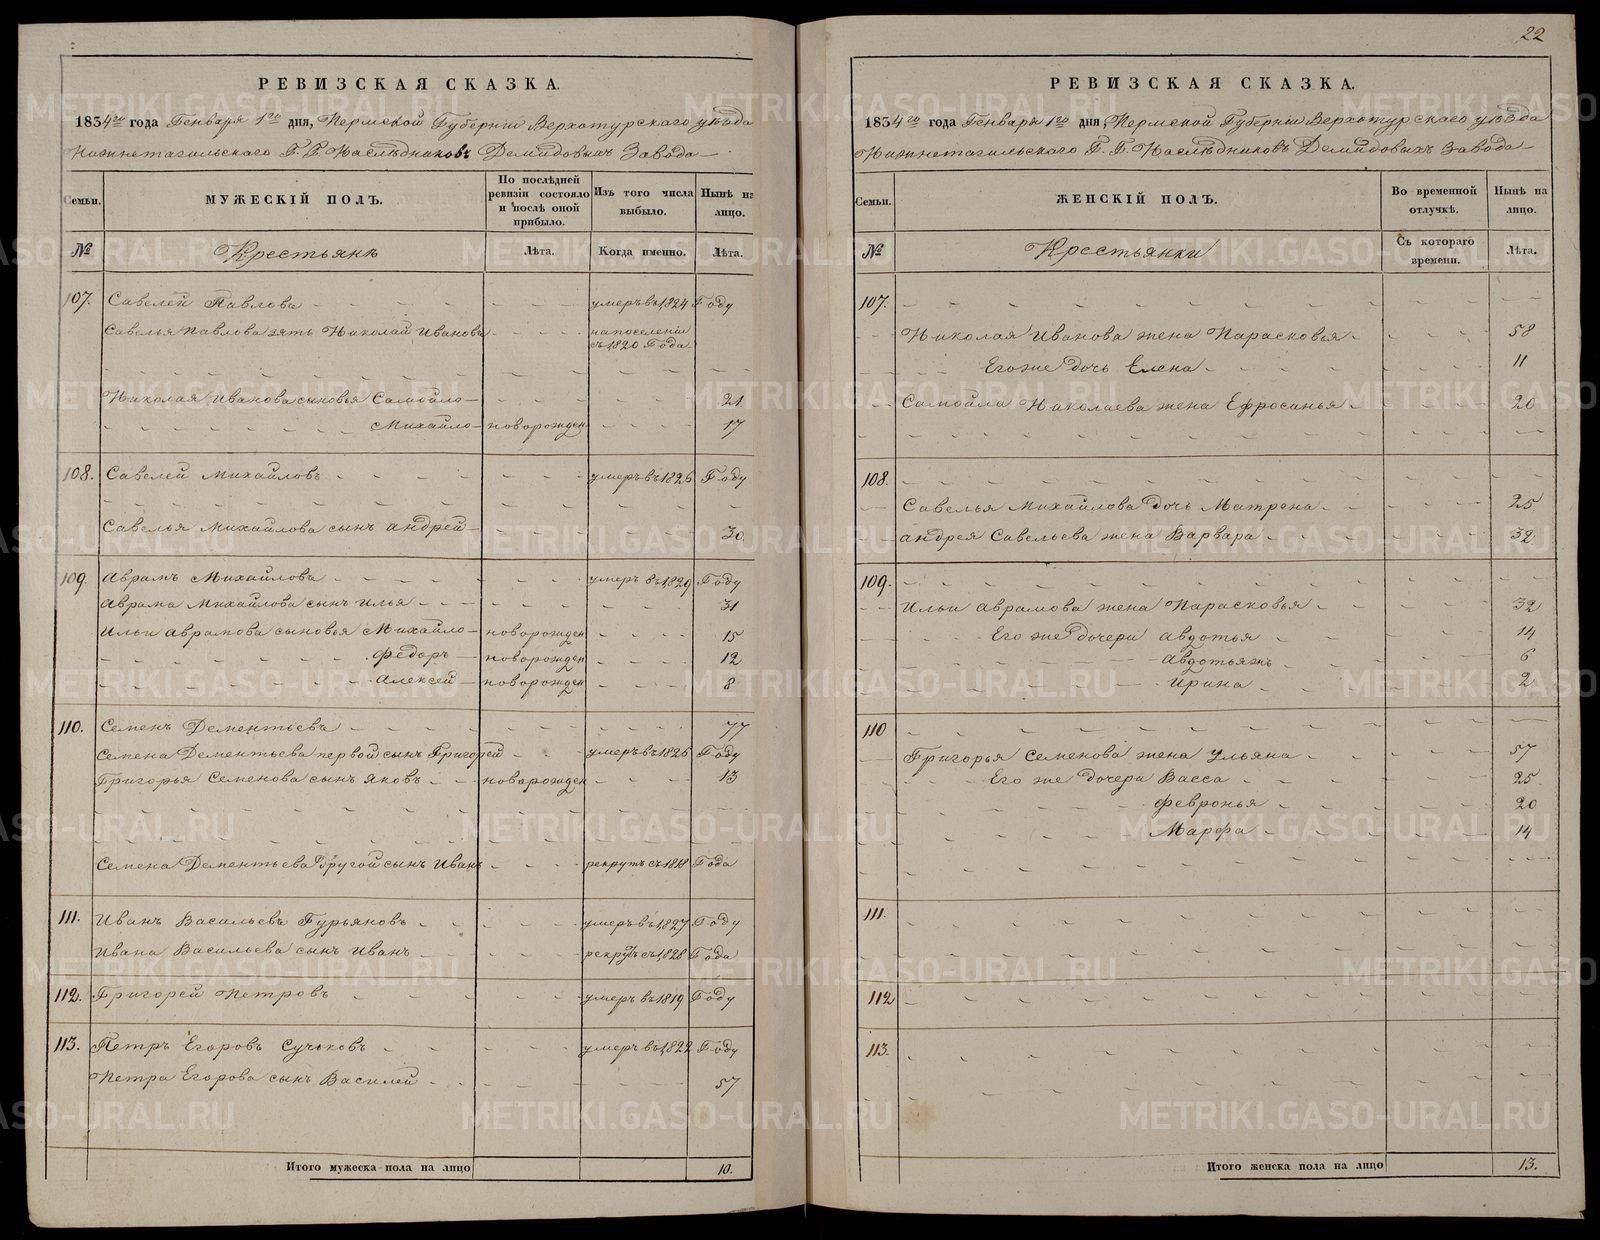 РЕВИЗСКАЯ СКАЗКА.
1834го года Генваря 1го дня, Пермской Губернiи Верхотурскаго уѣзда
Нижнетагильскаго Г. Г. Наслѣдниковъ Демидовыхъ Завода
Семьи.
МУЖЕСКIЙ ПОЛЪ.
По послѣдней ревизiи состояло и послѣ оной прибыло.
Изъ того числа выбыло.
Нынѣ на лицо.
№
Крестьянъ
Лѣта.
Когда именно.
Лѣта.
107. Савелей Павловъ умеръ въ 1824 Году
Савелья Павлова зять Николай Ивановъ на поселенiи
съ 1820 Года
Николая Иванова сыновья Самойло 21
Михайло новорожден 17
108. Савелей Михайловъ умеръ въ 1826 Году
Савелья Михайлова сынъ андрей 30
109. Аврамъ Михайловъ умеръ въ 1829 Году
Аврама Михайлова сынъ илья 31
Ильи аврамова сыновья Михайло новорожден 15
Федоръ новорожден 12
Алексей новорожден 8
110. Семенъ Дементьевъ 77
Семена Дементьева первой сынъ Григорей умеръ въ 1826 Году
Григорья Семенова сынъ яковъ новорожден 13
Семена Дементьева Другой сынъ Иванъ рекрутъ съ 1818 Года
111. Иванъ Васильевъ Гурьяновъ умеръ въ 1827 Году
Ивана Васильева сынъ Иванъ рекрутъ съ 1828 Года
112. Григорей Петровъ умеръ въ 1819 Году
113. Петръ Егоровъ Сучковъ умеръ въ 1822 Году
Петра Егорова сынъ Василей 57
Итого мужеска пола на лицо 10.
22
РЕВИЗСКАЯ СКАЗКА.
1834го года Генваря 1го дня, Пермской Губернiи Верхотурскаго уѣзда
Нижнетагильскаго Г. Г. Наслѣдниковъ Демидовыхъ Завода
Семьи.
ЖЕНСКIЙ ПОЛЪ.
Во временной отлучкѣ.
Нынѣ на лицо.
№
Крестьянки
Съ котораго времени.
Лѣта.
107.
Николая Иванова жена Парасковья 58
Егоже дочь Елена 11
Самойла Николаева жена Ефросинья 20
108.
Савелья Михайлова дочь Матрена 25
андрея Савельева жена Варвара 32
109.
Ильи аврамова жена Парасковья 32
Его же дочери авдотья 14
Авдотьяжъ 6
Ирина 2
110
Григорья Семенова жена ульяна 57
Его же дочери Васса 25
Февронья 20
Марфа 14
111.
112
113.
Итого женска пола на лицо 13.
METRIKI.GASO-URAL.RU